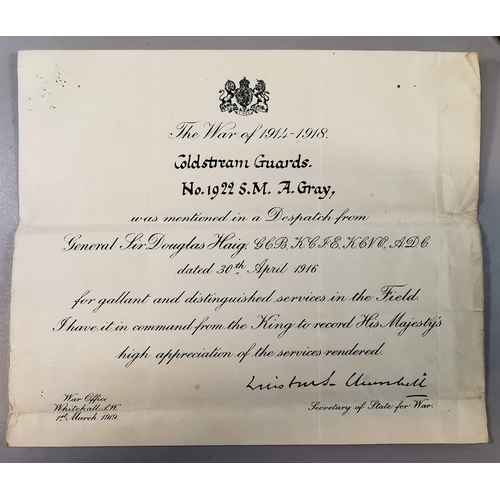 The War of 1914-1918.
Coldstream Guards.
No. 1922 S.M. A. Gray,
was mentioned in a Despatch from
General Sir Douglas Haig, G.C.B., K.C.I.E., K.C.V.O., A.D.C.
dated 30th April 1916
for gallant and distinguished services in the Field.
I have it in command from the King to record His Majesty's
high appreciation of the services rendered.
Winston S. Churchill
War Office
Whitehall. S.W.
1st March 1919.
Secretary of State for War.